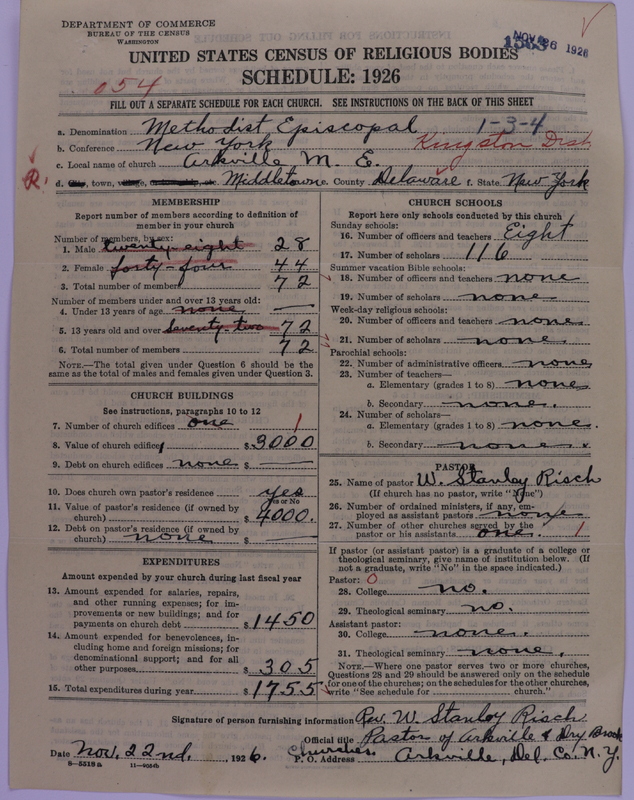 DEPARTMENT OF COMMERCE
BUREAU OF THE CENSUS
WASHINGTON
NOV 26 1926
1583
UNITED STATES CENSUS OF RELIGIOUS BODIES
SCHEDULE: 1926
054
FILL OUT A SEPARATE SCHEDULE FOR EACH CHURCH. SEE INSTRUCTIONS ON THE BACK OF THIS SHEET
a. Denomination Methodist Episcopal 1-3-4
b. Conference New York Kingston Dist
c. Local name of church Arkville M. E.
R. d. City, town, village, etc. Middletown e. County Delaware f. State New York
MEMBERSHIP
Report number of members according to definition of
member in your church
Number of members, by sex:
1. Male twenty-eight 28
2. Female forty-four 44
3. Total number of members 72
Number of members under and over 13 years old:
4. Under 13 years of age none —
5. 13 years old and over seventy-two 72
6. Total number of members 72
NOTE.—The total given under Question 6 should be
same as the total of males and females given under Question 3.
CHURCH BUILDINGS
See instructions, paragraphs 10 to 12
7. Number of church edifices one 1
8. Value of church edifices $3000
9. Debt on church edifices none $ —
10. Does church own pastor's residence yes
Yes or No
11. Value of pastor's residence (if owned by
church) $4000.
12. Debt on pastor's residence (if owned by
church) none $ —
EXPENDITURES
Amount expended by your church during last fiscal year
13. Amount expended for salaries, repairs,
and other running expenses; for im-
provements or new buildings; and for
payments on church debt $1450
14. Amount expended for benevolences, in-
cluding home and foreign missions; for
denominational support; and for all
other purposes $305
15. Total expenditures during year $1755
CHURCH SCHOOLS
Report here only schools conducted by this church
Sunday schools:
16. Number of officers and teachers Eight
17. Number of scholars 116
Summer vacation Bible schools:
18. Number of officers and teachers none
19. Number of scholars none
Week-day religious schools:
20. Number of officers and teachers none
21. Number of scholars none
Parochial schools:
22. Number of administrative officers none
23. Number of teachers—
a. Elementary (grades 1 to 8) none
b. Secondary none.
24. Number of scholars—
a. Elementary (grades 1 to 8) none.
b. Secondary none
PASTOR
25. Name of pastor W. Stanley Risch
(If church has no pastor, write "None")
26. Number of ordained ministers, if any, em-
ployed as assistant pastors none
27. Number of other churches served by the
pastor or his assistants one. 1
If pastor (or assistant pastor) is a graduate of a college or
theological seminary, give name of institution below. (If
not a graduate, write "No" in the space indicated.)
Pastor: 0
28. College no.
29. Theological seminary no.
Assistant pastor:
30. College none.
31. Theological seminary none.
NOTE.—Where one pastor serves two or more churches,
Questions 28 and 29 should be answered only on the schedule
for one of the churches; on the schedules for the other churches,
write "See schedule for church."
Signature of person furnishing information Rev. W. Stanley Risch
Official title Pastor of Arkville & Dry Brook
Churches
Date Nov. 22nd, 1926. P. O. Address Arkville, Del. Co. N. Y.